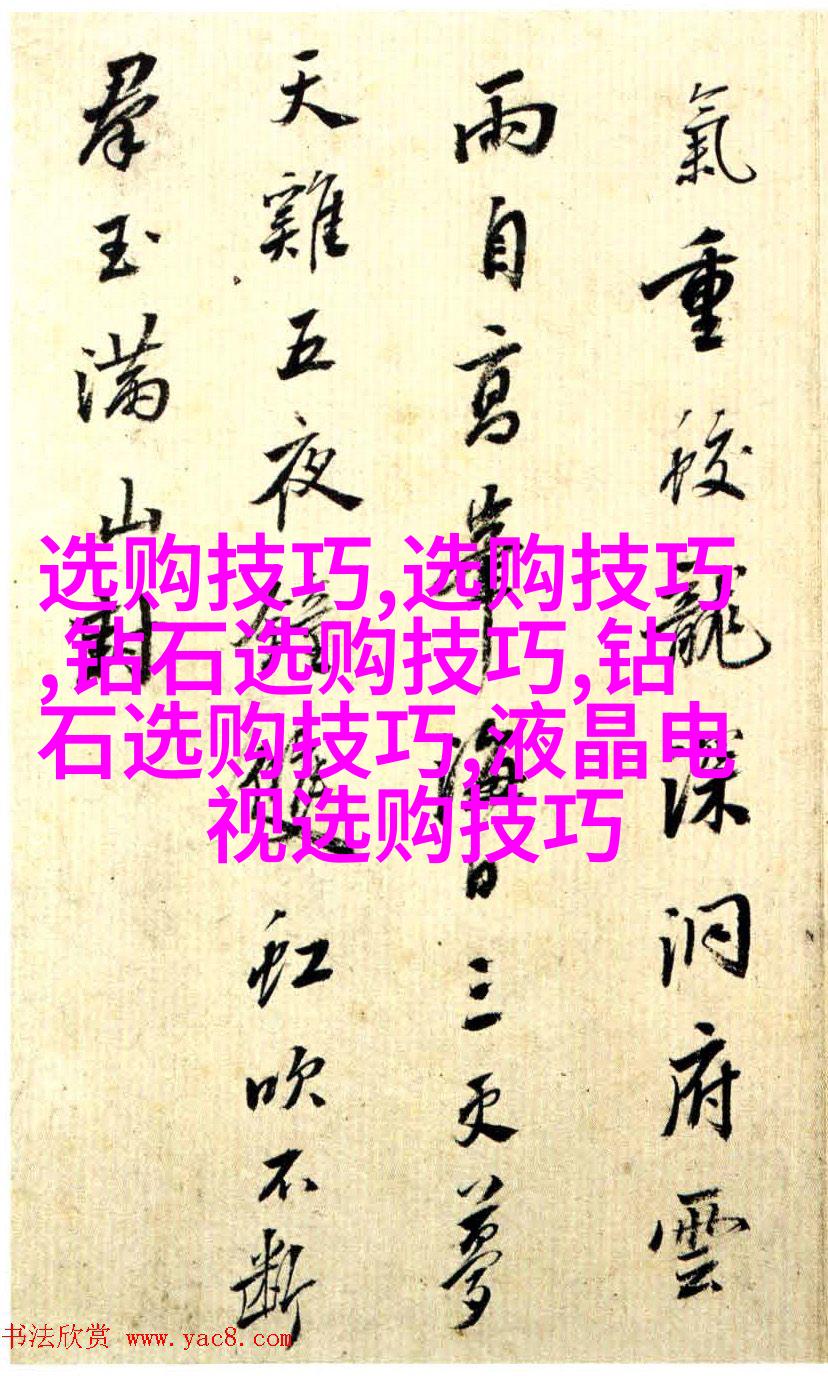 氣重蛟龍深洞府雲
雨自高峯海日三更夢
天雞五夜鐘殘虹吹不斷
羣玉滿山封
选购技巧,选购技巧
,钻石选购技巧,钻
石选购技巧,液晶电
视选购技巧
书法欣赏 www.yac8.com